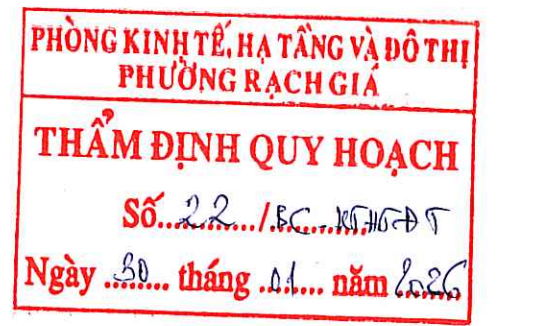 PHÒNG KINH TẾ, HẠ TẦNG VÀ ĐÔ THỊ
PHƯỜNG RẠCH GIÁ
THẨM ĐỊNH QUY HOẠCH
Số...22.../BC-KTHTĐT
Ngày ..30.... tháng ..01.... năm 2026